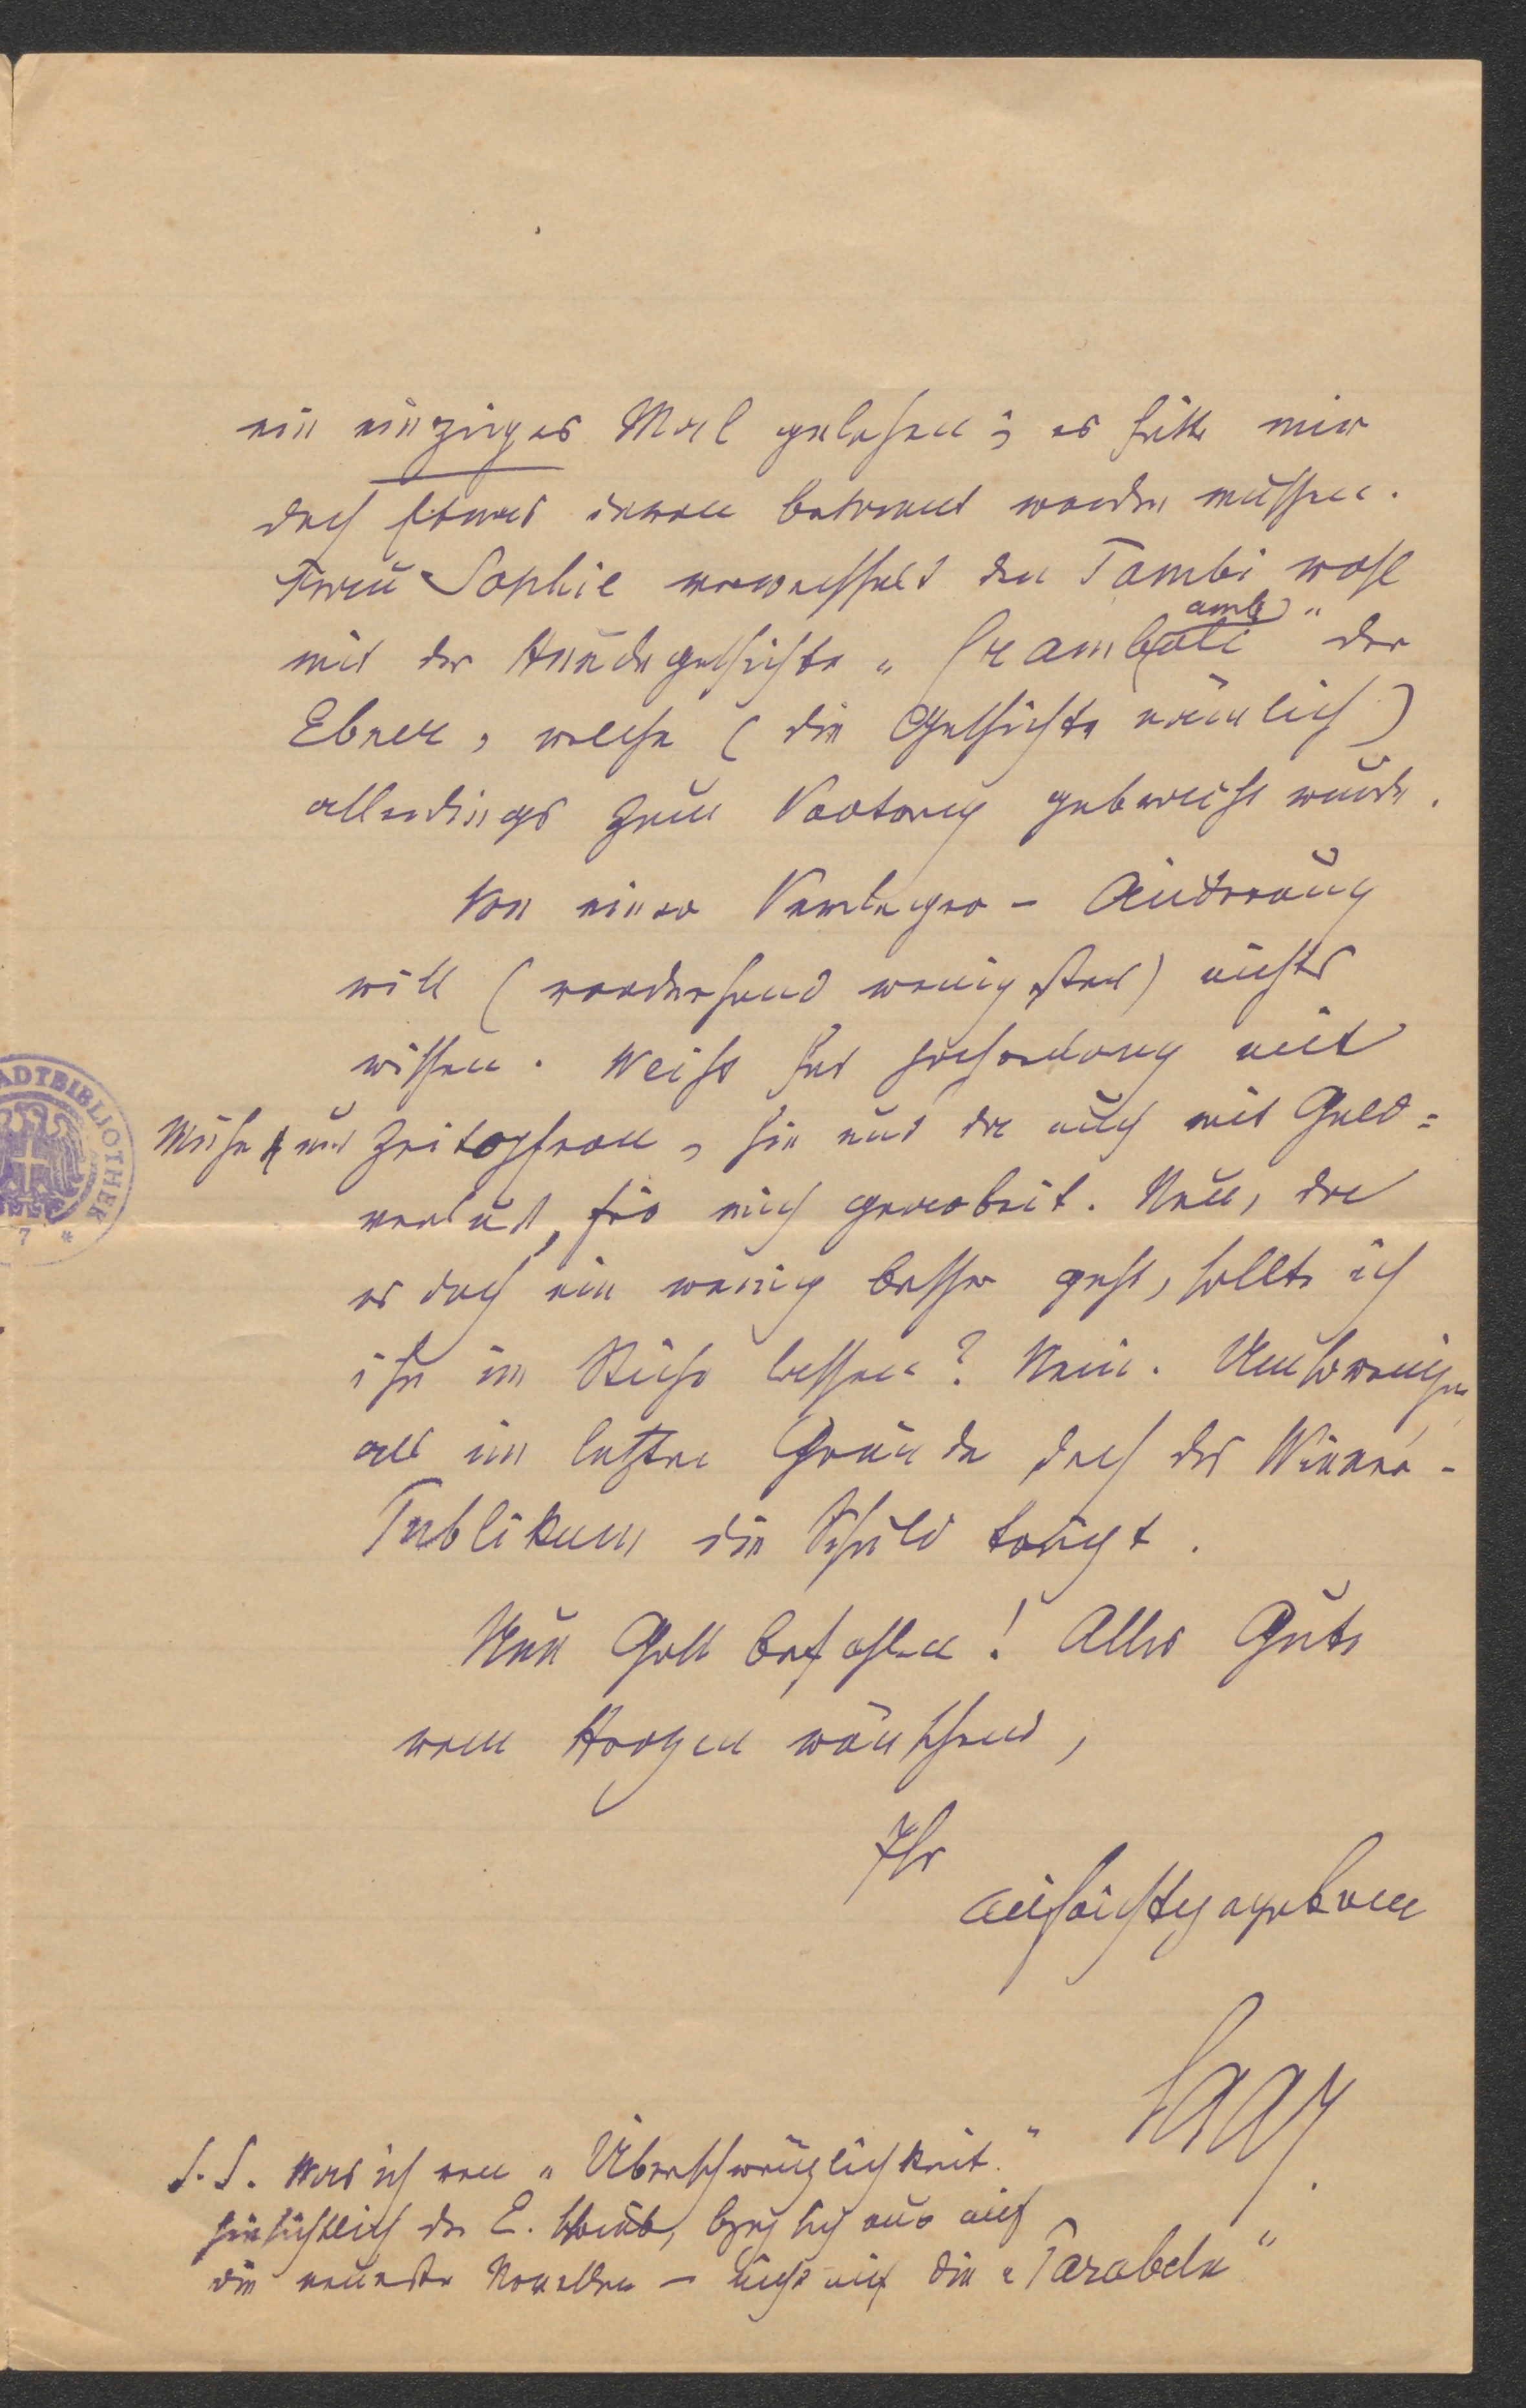 ein einziges Mal gelesen; es hätte mir
doch Etwas davon bekannt werden müssen.
Frau Sophie verwechselt den Tambi wohl
amb
mit der Hundegeschichte „Krambambuli“ der
Ebner, welche (die Geschichte nämlich)
allerdings zum Vortrag gebracht wurde.
Von einer Verleger-Änderung
will (vorderhand wenigstens) nichts
wissen. Weiß hat jahrelang mit
Mühe und Zeitopfern, hin und da auch mit Geld=
verlust, für mich gearbeitet. Nun, da
es doch ein wenig besser geht, sollte ich
ihn im Stiche lassen? Nein. Umsoweniger,
als im letzten Grunde doch das Wiener-
Publikum die Schuld trägt.
Nun Gott befohlen! Alles Gute
vom Herzen wünschend,
Ihr
aufrichtig ergebener
Saar.
P.S. Was ich von „Überschwänglichkeit“
hinsichtlich der E. schrieb, bezog sich nur auf
die neueste Novelle – nicht auf die „Parabeln“
STADTBIBLIOTHEK
7 *